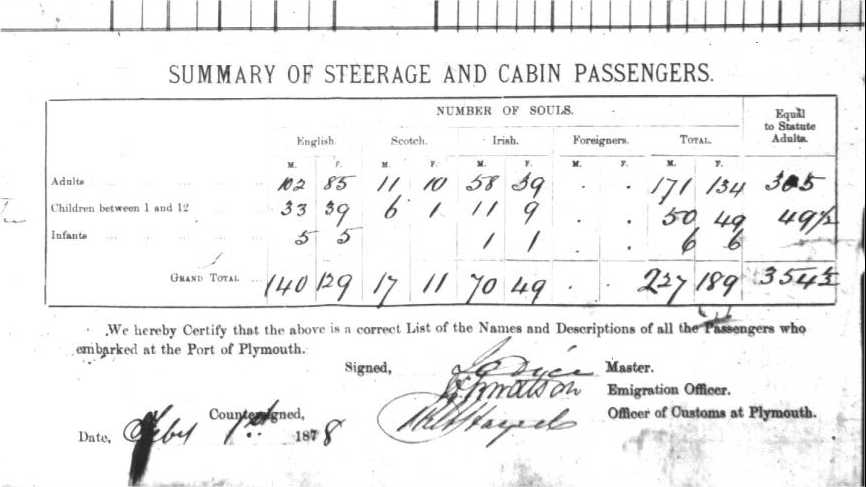 SUMMARY OF STEERAGE AND CABIN PASSENGERS.
NUMBER OF SOULS. Equal to Statute Adults.
English. Scotch. Irish. Foreigners. TOTAL.
M. F. M. F. M. F. M. F. M. F.
Adults ... 102 85 11 10 58 39 . . 171 134 305
Children between 1 and 12 ... 33 39 6 1 11 9 . . 50 49 49½
Infants ... 5 5 1 1 . . 6 6
GRAND TOTAL ... 140 129 17 11 70 49 . . 227 189 354½
We hereby Certify that the above is a correct List of the Names and Descriptions of all the Passengers who
embarked at the Port of Plymouth.
Signed, Master.
Watson Emigration Officer.
Countersigned, Officer of Customs at Plymouth.
Date, Feby 1st 1878